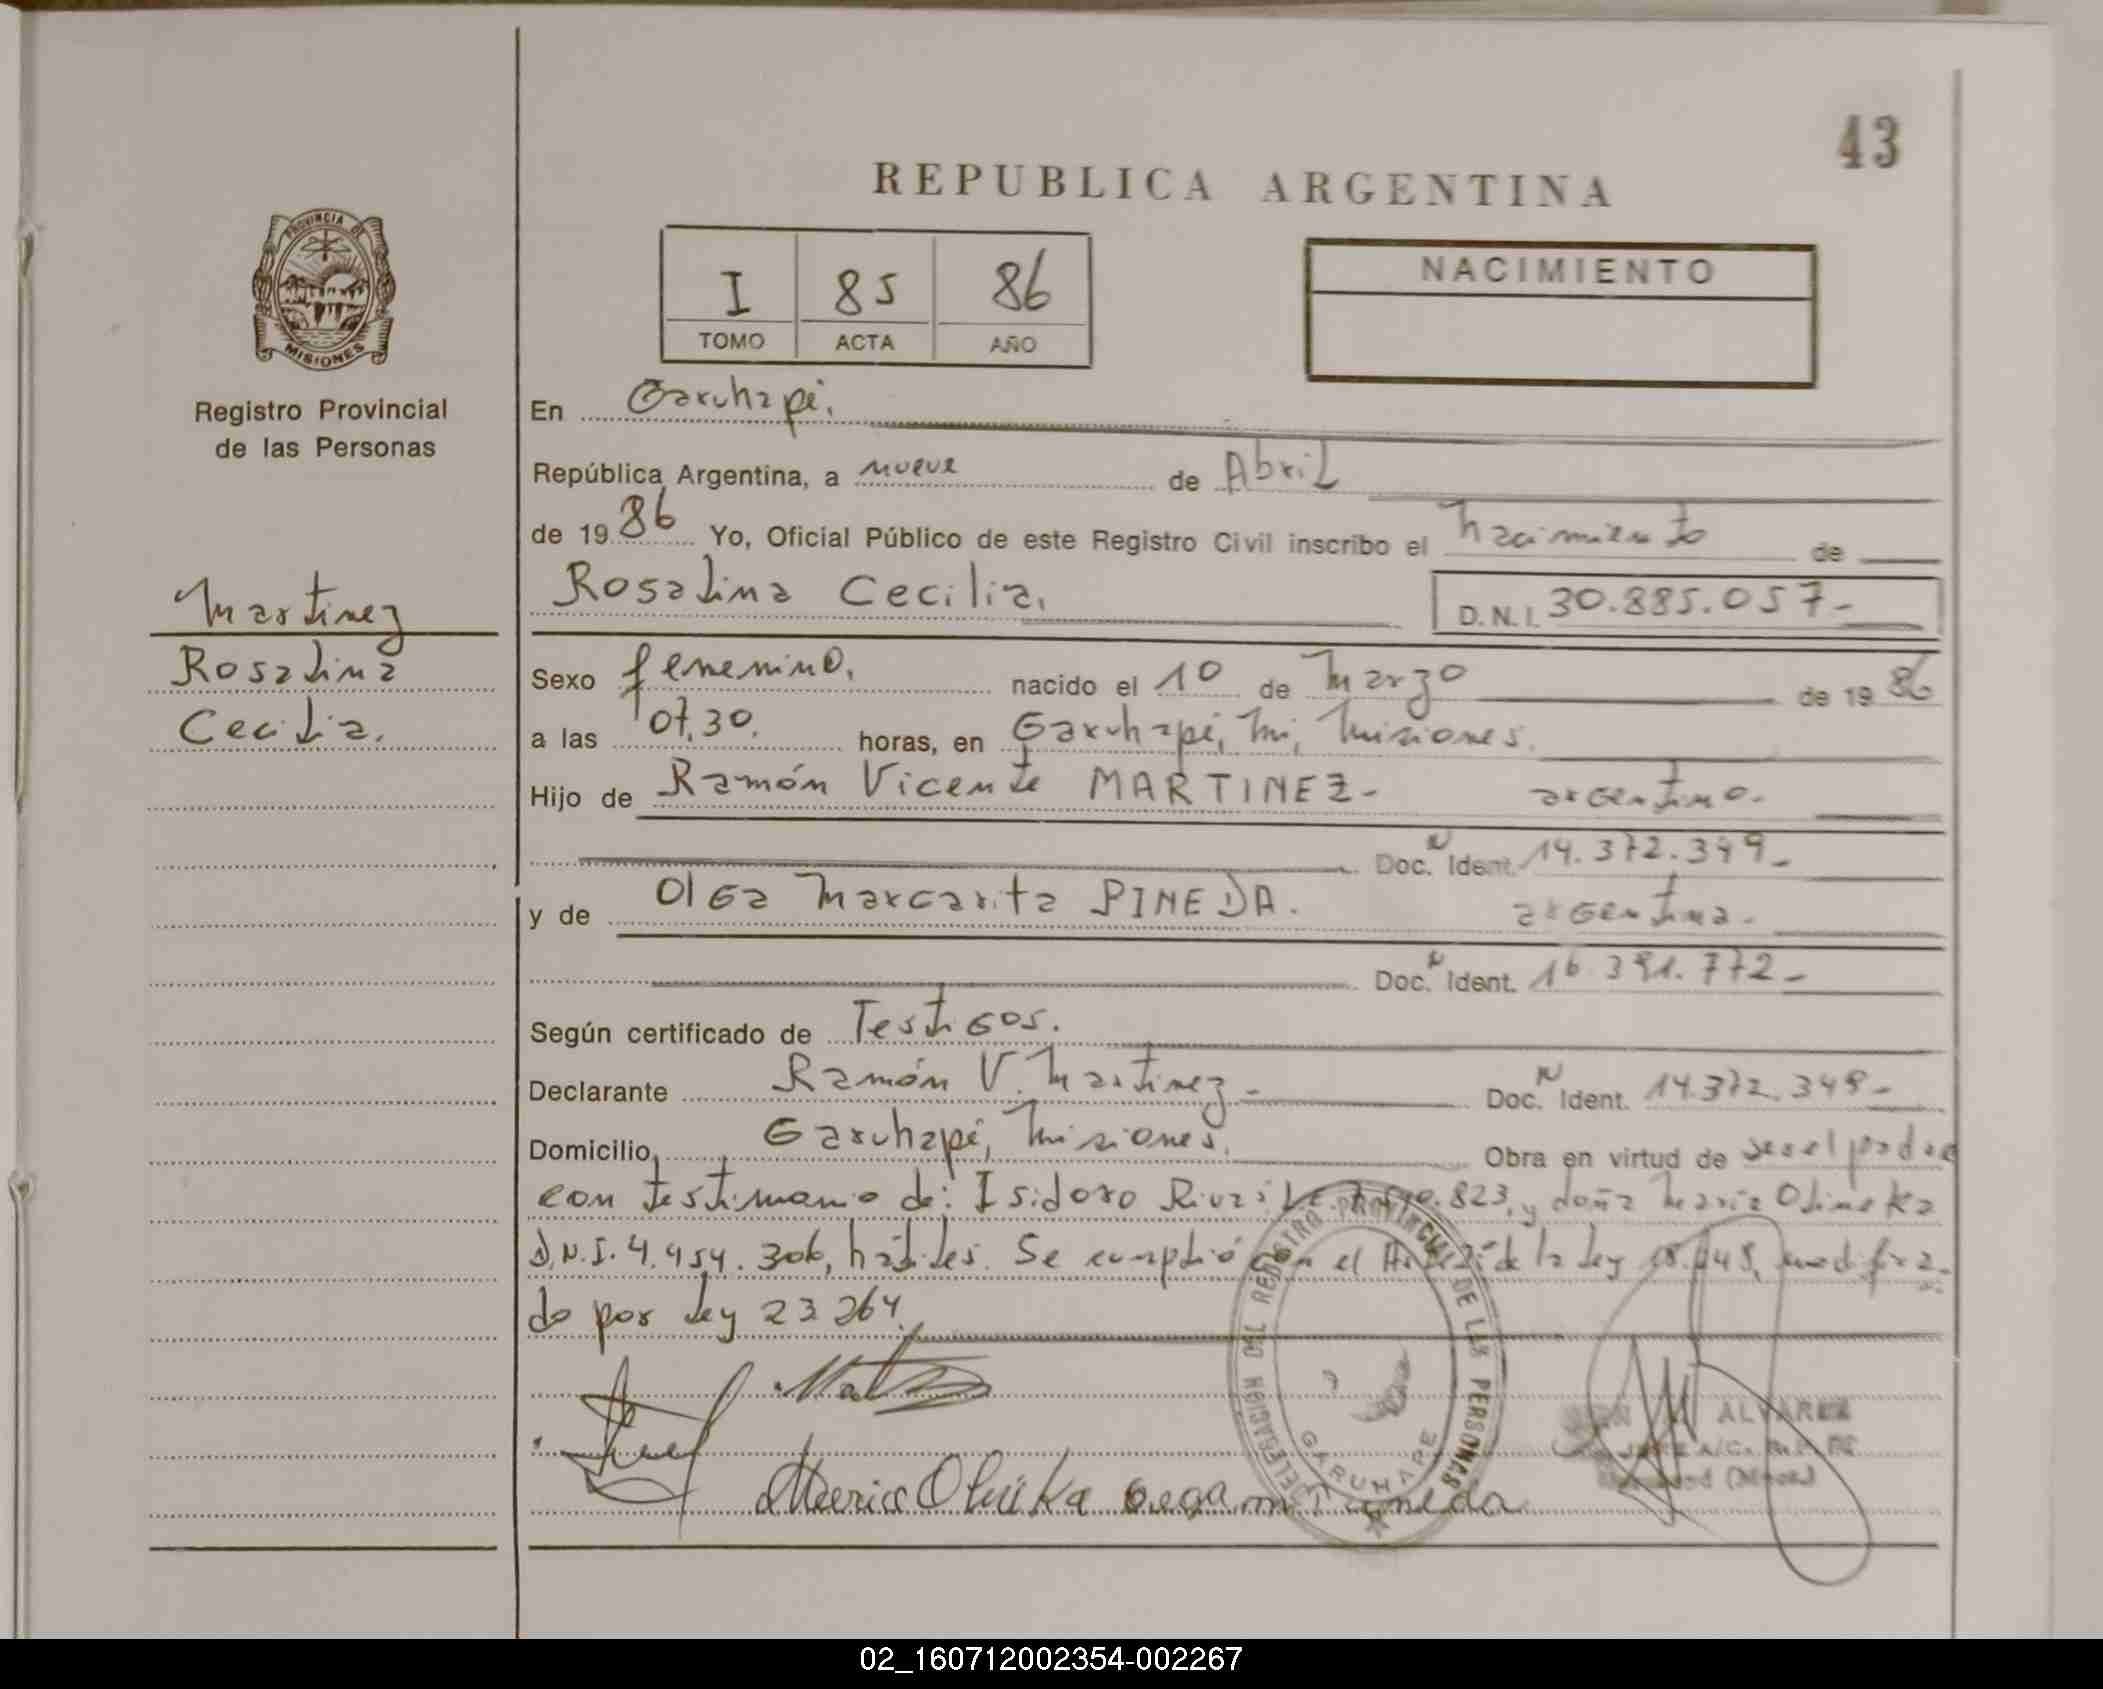 43
REPUBLICA ARGENTINA
I 85 86
TOMO ACTA AÑO
NACIMIENTO
PROVINCIA DE
MISIONES
Registro Provincial
de las Personas
Martinez
Rosalina
Cecilia.
En Garuhapé.
República Argentina, a nueve de Abril
de 19 86 Yo, Oficial Público de este Registro Civil inscribo el nacimiento de
Rosalina Cecilia. D.N.I. 30.885.057-
Sexo femenino. nacido el 10 de Marzo de 19 86
a las 07.30. horas, en Garuhapé, Mi, Misiones.
Hijo de Ramón Vicente MARTINEZ- argentino.
Doc. N Ident. 14.372.349-
y de Olga Margarita PINEDA. argentina.
Doc. N Ident. 16.391.772-
Según certificado de Testigos.
Declarante Ramón V. Martinez- Doc. N Ident. 14.372.349-
Domicilio, Garuhapé, Misiones. Obra en virtud de ser el padre
con testimonio de: Isidoro 823, y doña María Olinuka
D.N.I. 4.954.306, hábiles. Se cumplió con el Art. de la Ley 18.248, modifica-
do por Ley 23 264.
DELEGACION DEL REGISTRO PROVINCIAL DE LAS PERSONAS
GARUHAPE
ALVAREZ
02_160712002354-002267